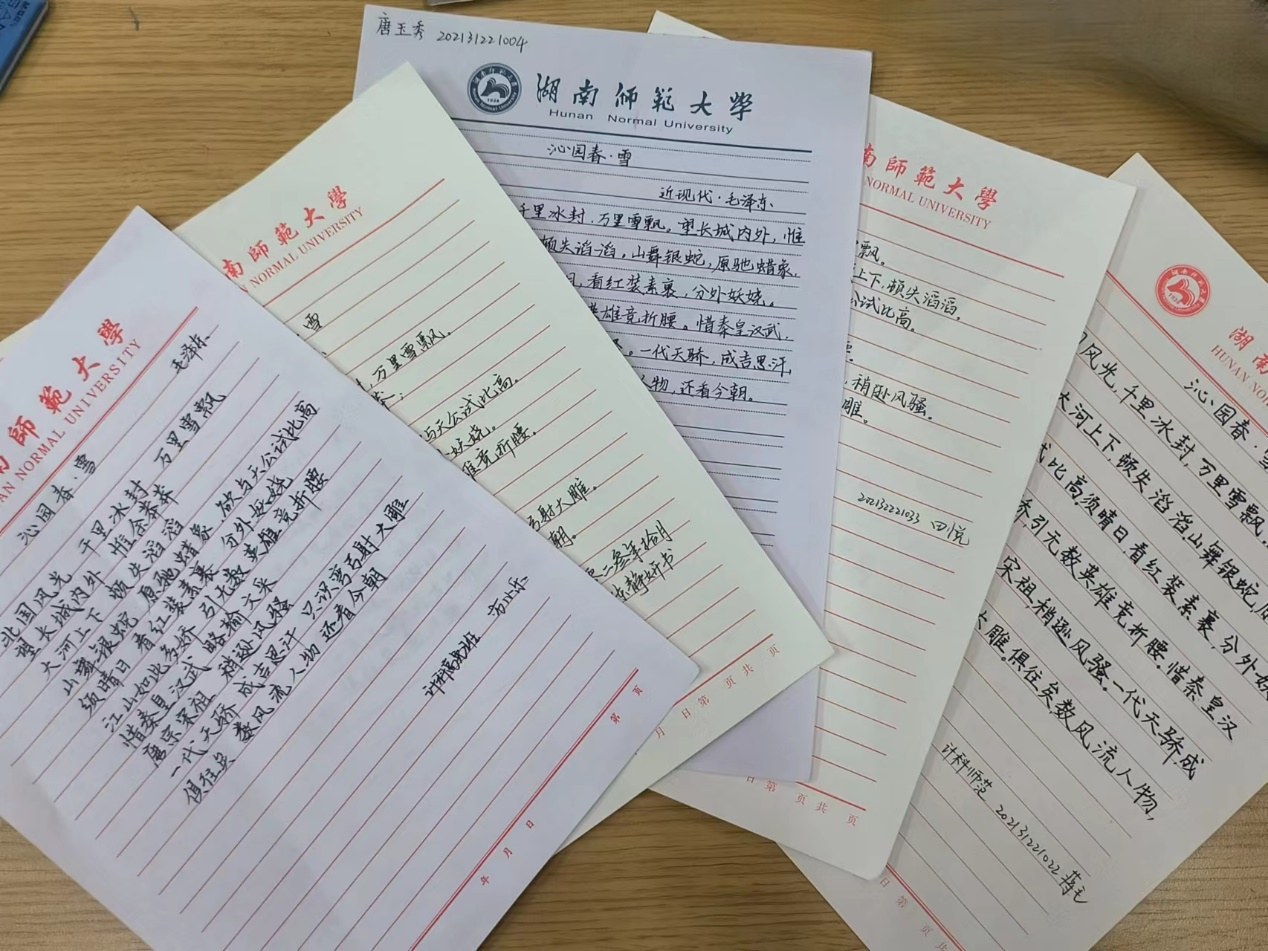 南師範大學
AN NORMAL UNIVERSITY
沁园春·雪
毛泽东
北国风光 千里冰封 万里雪飘
望长城内外 惟余莽莽
大河上下 顿失滔滔
山舞银蛇 原驰蜡象 欲与天公试比高
须晴日 看红装素裹 分外妖娆
江山如此多娇 引无数英雄竞折腰
惜秦皇汉武 略输文采
唐宗宋祖 稍逊风骚
一代天骄 成吉思汗 只识弯弓射大雕
俱往矣 数风流人物 还看今朝
年 月 日
第 页
南師範大學
NORMAL UNIVERSITY
雪
万里雪飘。
与天公试比高。
妖娆。
雄竞折腰。
弓射大雕。
朝。
二叁年拾月
书
月 日 第 页 共 页
唐玉秀 202131221004
湖南师範大學
Hunan Normal University
沁园春·雪
近现代·毛泽东
千里冰封,万里雪飘。望长城内外,惟
顿失滔滔。山舞银蛇,原驰蜡象,
,看红装素裹,分外妖娆。
英雄竞折腰。惜秦皇汉武,
。一代天骄,成吉思汗,
人物,还看今朝。
南師範大學
NORMAL UNIVERSITY
飘。
上下,顿失滔滔。
公试比高。
,稍逊风骚。
雕。
202132221033 田悦
日 第 页 共 页
湖南
HUNAN NO
沁园春·雪
风光,千里冰封,万里雪飘,
大河上下,顿失滔滔山舞银蛇,原
试比高须晴日,看红装素裹,分外妖
引无数英雄竞折腰,惜秦皇汉
宋祖,稍逊风骚。一代天骄成
大雕。俱往矣数风流人物,
计科师范 202131221022 蒋
日 第 页 共